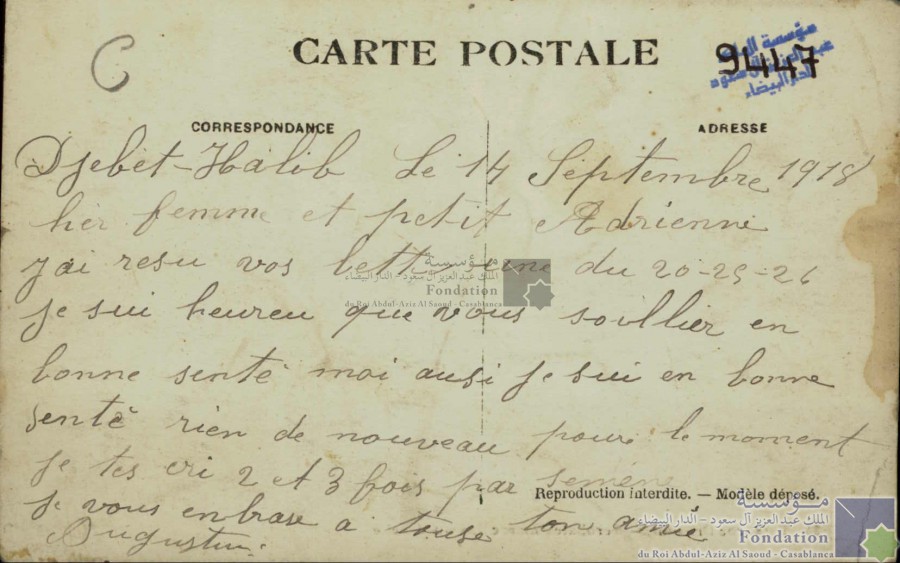 C
CARTE POSTALE
94447
مؤسسة الملك
عبد العزيز آل سعود
الدار البيضاء
CORRESPONDANCE
ADRESSE
Djebet-Halib Le 14 Septembre 1918
her femme et petit Adrienne
jai resu vos du 20-25-26
je sui heureu que vous soillier en
bonne sentè moi ausi je sui en bonne
sentè rien de nouveau pour le moment
je tes cri 2 et 3 fois par semen
je vous enbrase a touse ton amie
Augustin.
Reproduction interdite. — Modèle déposé.
مؤسسة
الملك عبد العزيز آل سعود – الدار البيضاء
Fondation
du Roi Abdul-Aziz Al Saoud - Casablanca
مؤسسة
الملك عبد العزيز آل سعود – الدار البيضاء
Fondation
du Roi Abdul-Aziz Al Saoud - Casablanca